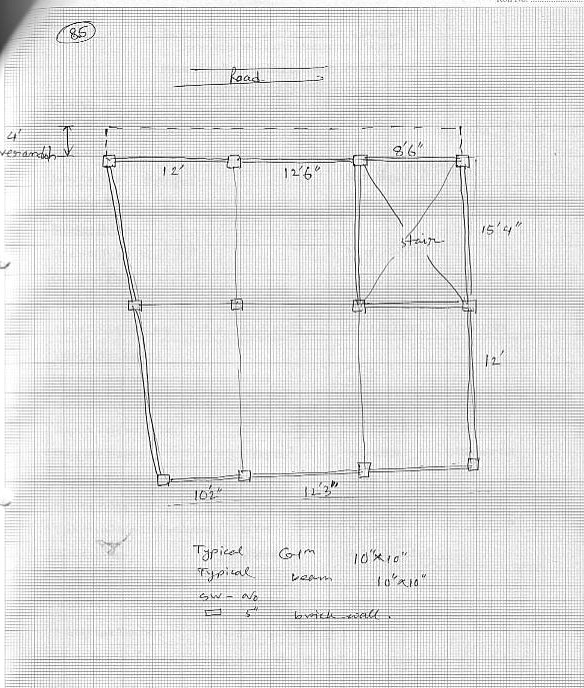 85
Road
4'
verandah
12'
12'6"
8'6"
stair
15'4"
12'
10'2"
12'3"
Typical Colm 10"x10"
Typical beam 10"x10"
SW - No
5" brick wall.